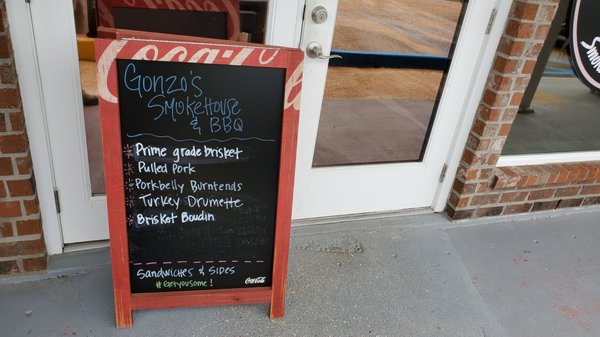 Coca-Cola
Gonzo's
Smokehouse
& BBQ
Prime grade brisket
Pulled Pork
Porkbelly Burntends
Turkey Drumette
Brisket Boudin
Sandwiches & Sides
#Getyousome!
Coca-Cola